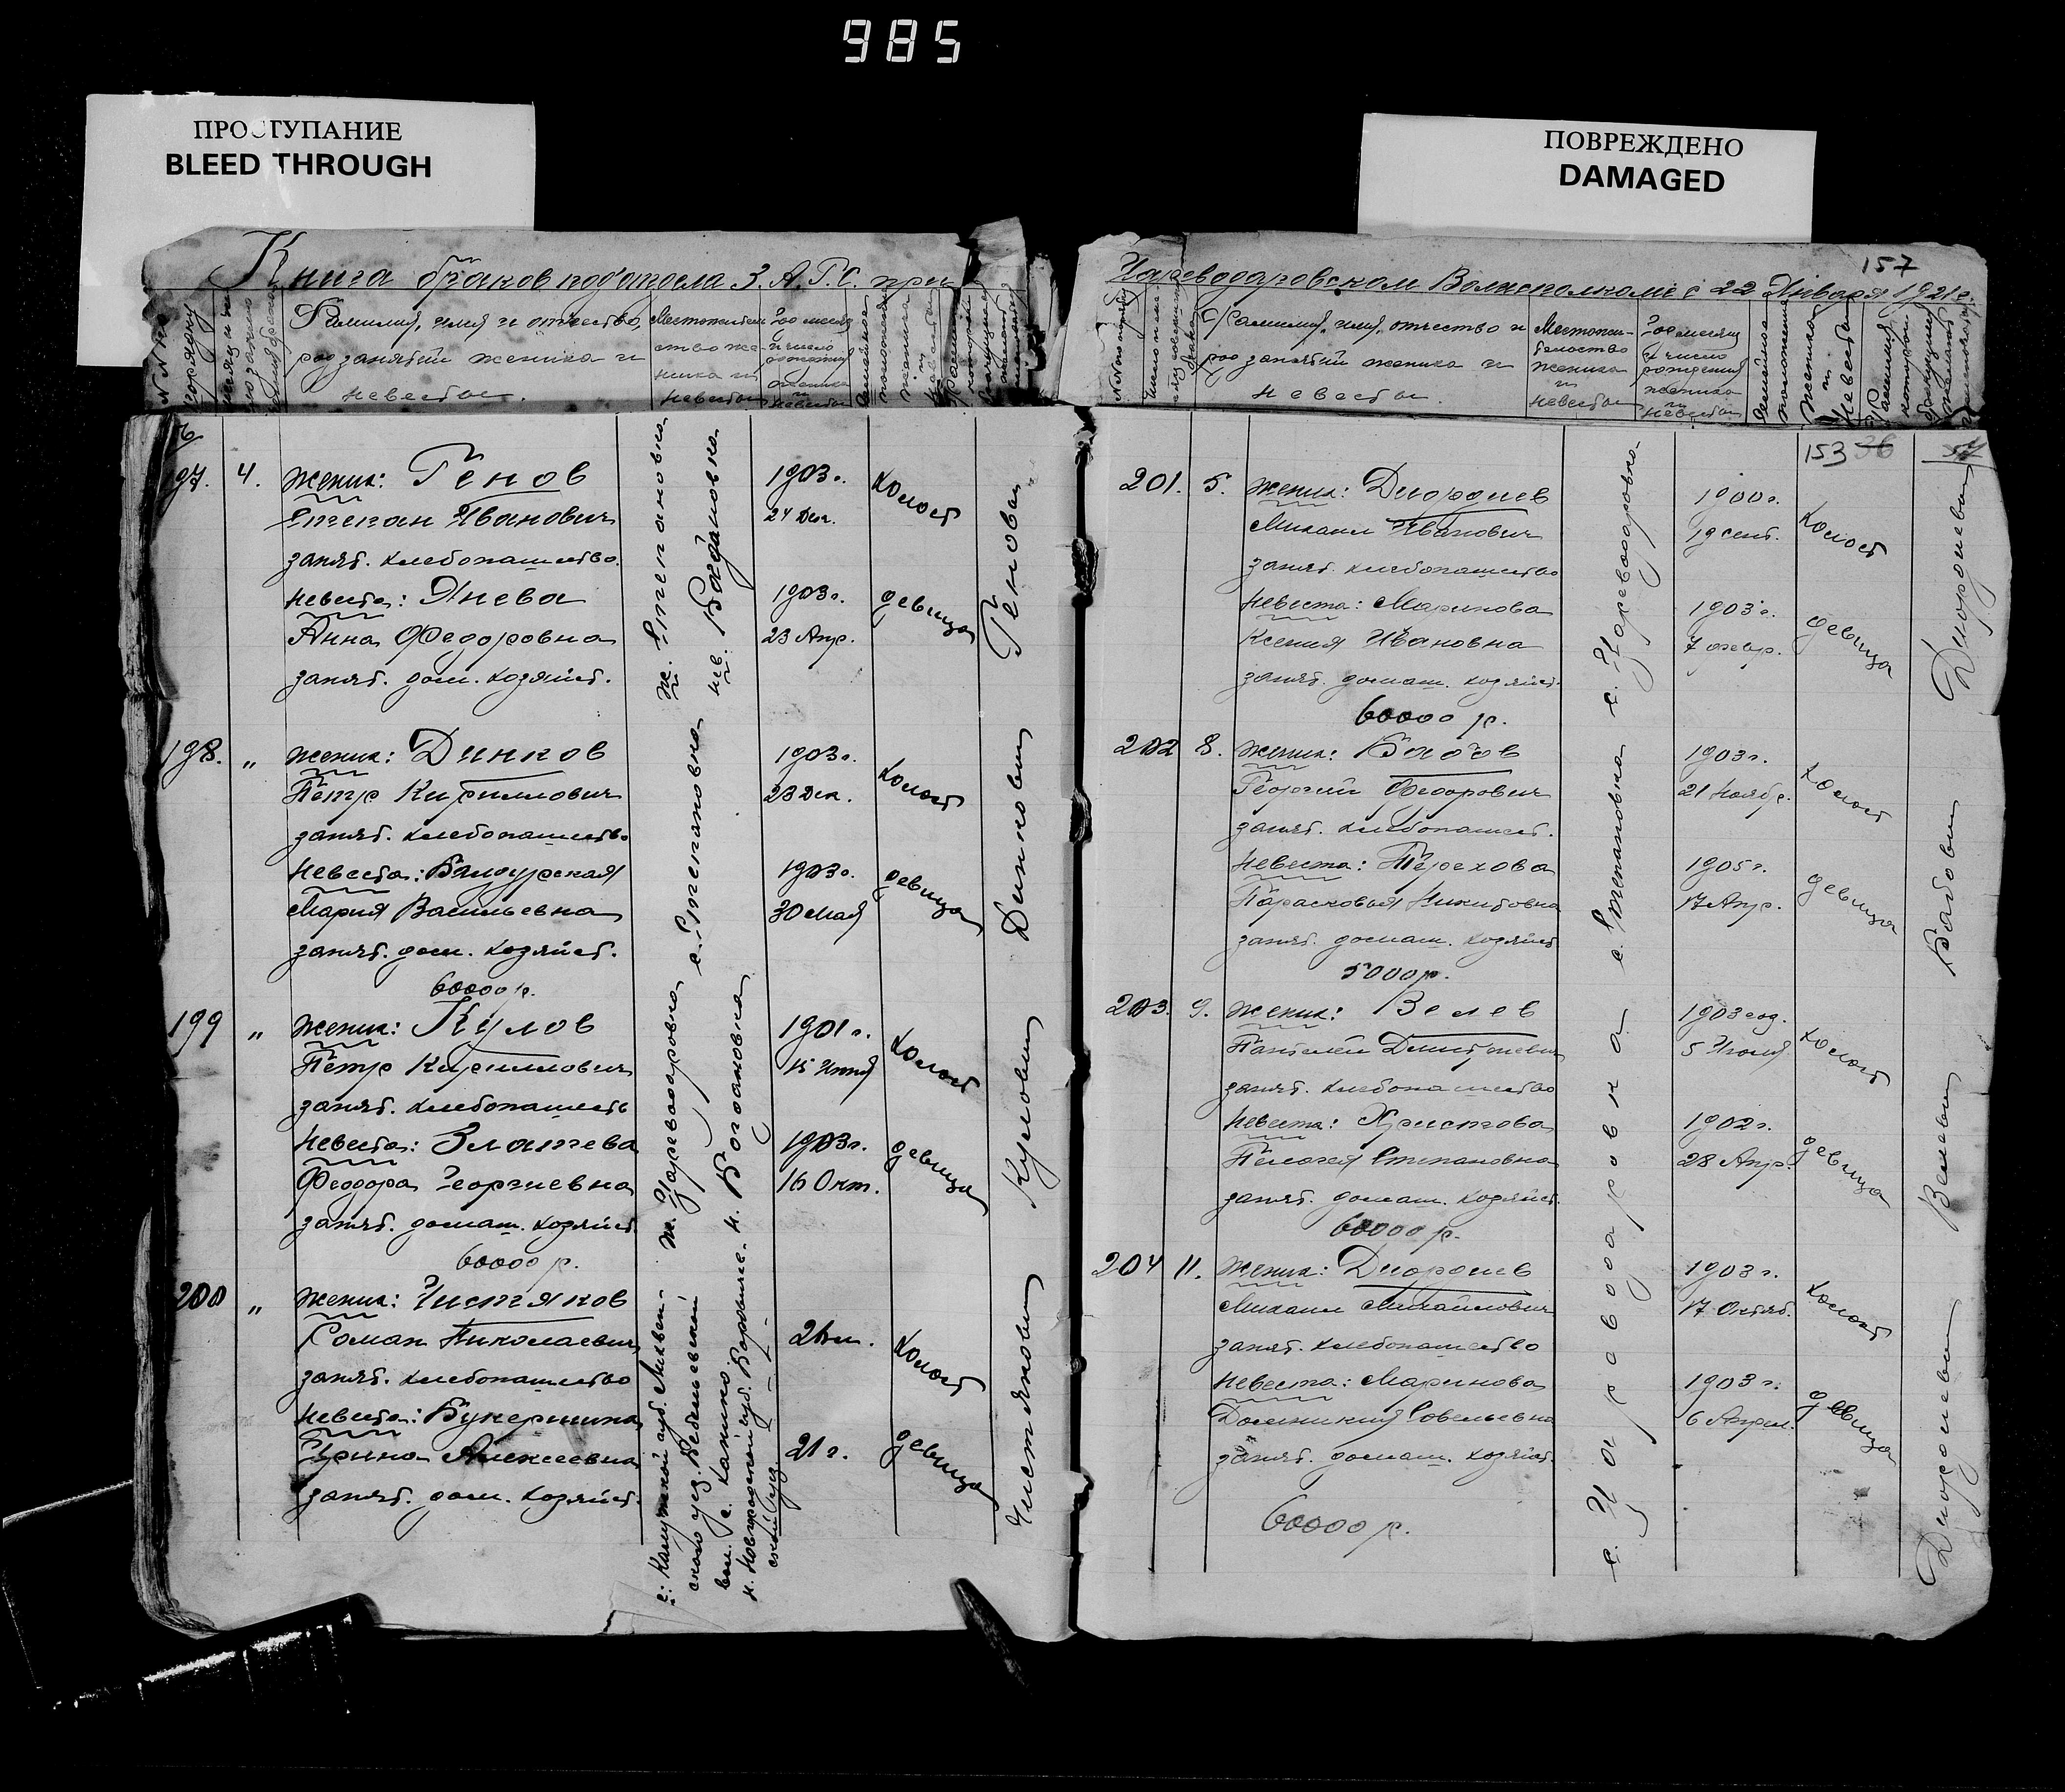 985
ПРОСТУПАНИЕ
BLEED THROUGH
ПОВРЕЖДЕНО
DAMAGED
Книга браков подотдела З.А.Г.С. при
№№ по порядку
Фамилия, имя и отчество,
род занятий жениха и
невесты.
Местожительство жениха и невесты
Год месяц и число рождения жениха и невесты
Семейное положение жениха и невесты
97. 4. жених: Генов
Степан Иванович
занят. хлебопашество.
невеста: Янева
Анна Федоровна
занят. дом. хозяйст.
ж. Степановка
нев. Богдановка
1903 г.
24 Дек.
1903 г.
23 Апр.
холост
девица
Геновы
198. " жених: Динков
Петр Кириллович
занят. хлебопашество
невеста:
Мария Васильевна
занят. дом. хозяйст.
60000 р.
с. Степановка
1903 г.
23 Дек.
1903 г.
30 Мая
холост
девица
Динковы
199 " жених: Кулов
Петр Кириллович
занят. хлебопашеств
невеста: Златева
Федора Георгиевна
занят. домаш. хозяйст.
60000 р.
ж. Цареводаровка
н. Богдановка
1901 г.
1903 г.
16 Окт.
холост
девица
Куловы
200 " жених: Чистяков
Роман Николаевич
занят. хлебопашество
невеста:
Ирина Алексеевна
занят. дом. хозяйст.
ж. Калужской губ. Лихвинского уез.
вол. с.
н. Новгородской губ. Боровичский уез.
21 г.
холост
девица
Чистяковы
157
Цареводаровском Волисполкоме с 22 Января 1921 г.
Фамилия, имя, отчество и
род занятий жениха и
невесты.
Местожительство
жениха
и
невесты
Год месяц
и число
рождения
жениха
и
невесты
Семейное положение жениха и невесты
153 36
201. 5. жених: Диордиев
Михаил Иванович
занят. хлебопашество
невеста: Маринова
Ксения Ивановна
занят. домаш. хозяйст.
60000 р.
с. Цареводаровка
1900 г.
19 сент.
1903 г.
7 февр.
холост
девица
Диордиевы
202 8. жених: Бабов
Георгий Федорович
занят. хлебопашест.
невеста: Терехова
Парасковья Никитовна
занят. домаш. хозяйст
5000 р.
с. Степановка
1903 г.
21 Ноябр.
1905 г.
17 Апр.
холост
девица
Бабовы
203. 9. жених: Велев
Пантелей Дмитриевич
занят. хлебопашество
невеста: Христова
Пелагея Степановна
занят. домаш. хозяйст.
60000 р.
1903 год.
1902 г.
28 Апр.
холост
девица
Велевы
204 11. жених: Диордиев
Михаил Михайлович
занят. хлебопашество
невеста: Маринова
Домникия Савельевна
занят. домаш. хозяйст.
60000 р.
с. Цареводаровка
1903 г.
17 Октяб.
1903 г.
6 Апрел.
холост
девица
Диордиевы